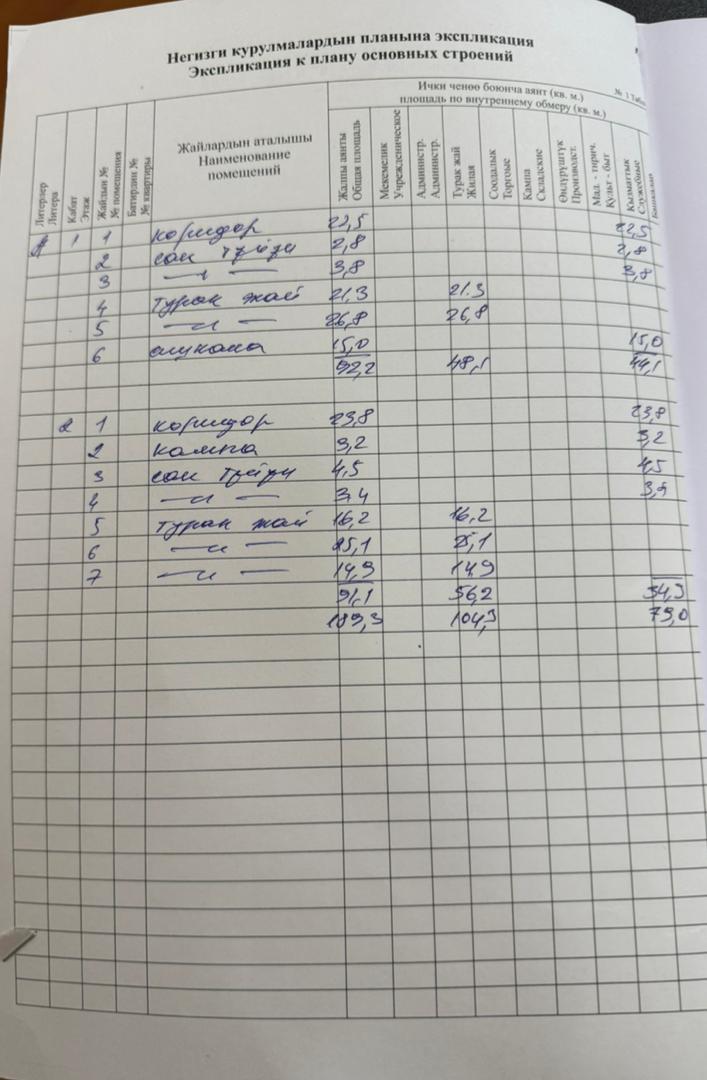 Негизги курулмалардын планына экспликация
Экспликация к плану основных строений
№ 1 Табл
Литерлер
Литера
Кабат
Этаж
Жайдын №
№ помещения
Батирдин №
№ квартиры
Жайлардын аталышы
Наименование
помещений
Ички ченөө боюнча аянт (кв. м.)
площадь по внутреннему обмеру (кв. м.)
Жалпы аянты
Общая площадь
Мекемелик
Учрежденическое
Администр.
Администр.
Турак жай
Жилая
Соодалык
Торговые
Кампа
Складские
Өндүрүштүк
Производст.
Мад. - тирич.
Культ - быт
Кызматтык
Служебные
Башкалар
1 1 коридор 22,5 22,5
2 сан түйүн 2,8 2,8
3 —"— 3,8 3,8
4 турак жай 21,3 21.3
5 —"— 26,8 26,8
6 ашкана 15,0 15,0
92,2 48,1 44,1
2 1 коридор 23,8 23,8
2 кампа 3,2 3,2
3 сан түйүн 4,5 4,5
4 —"— 3,4 3,4
5 турак жай 16,2 16,2
6 —"— 25,1 25,1
7 —"— 14,9 14,9
91,1 56,2 34,9
189,3 104,3 79,0